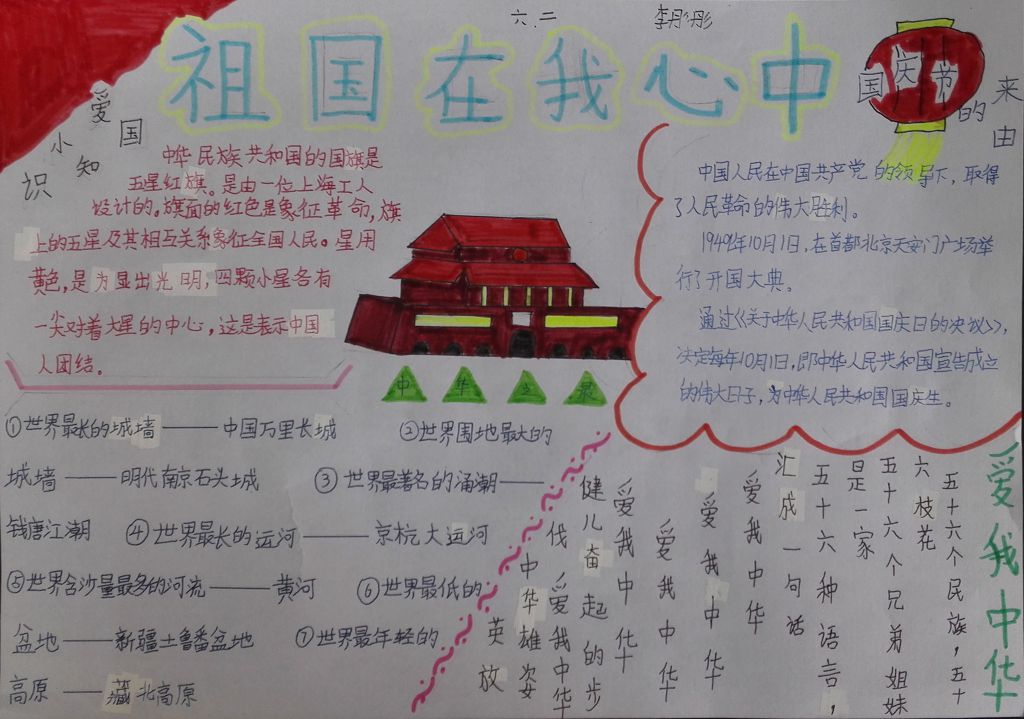 六.二 李彤彤
祖国在我心中
爱国
小知
识
中华民族共和国的国旗是
五星红旗。是由一位上海工人
设计的。旗面的红色是象征革命,旗
上的五星及其相互关系象征全国人民。星用
黄色,是为显出光明,四颗小星各有
一尖对着大星的中心,这是表示中国
人团结。
国庆节的来由
中国人民在中国共产党的领导下,取得
了人民革命的伟大胜利。
1949年10月1日,在首都北京天安门广场举
行了开国大典。
通过《关于中华人民共和国国庆日的决议》,
决定每年10月1日,即中华人民共和国宣告成立
的伟大日子,为中华人民共和国国庆生。
中华之最
①世界最长的城墙——中国万里长城
②世界围地最大的
城墙——明代南京石头城
③世界最著名的涌潮——
钱唐江潮
④世界最长的运河——京杭大运河
⑤世界含沙量最多的河流——黄河
⑥世界最低的
盆地——新疆土鲁番盆地
⑦世界最年轻的
高原——藏北高原
爱我中华
五十六个民族,五十
六枝花
五十六个兄弟姐妹
是一家
五十六种语言,
汇成一句话
爱我中华
爱我中华
爱我中华
爱我中华
健儿奋起的步
伐爱我中华
中华雄姿
英放